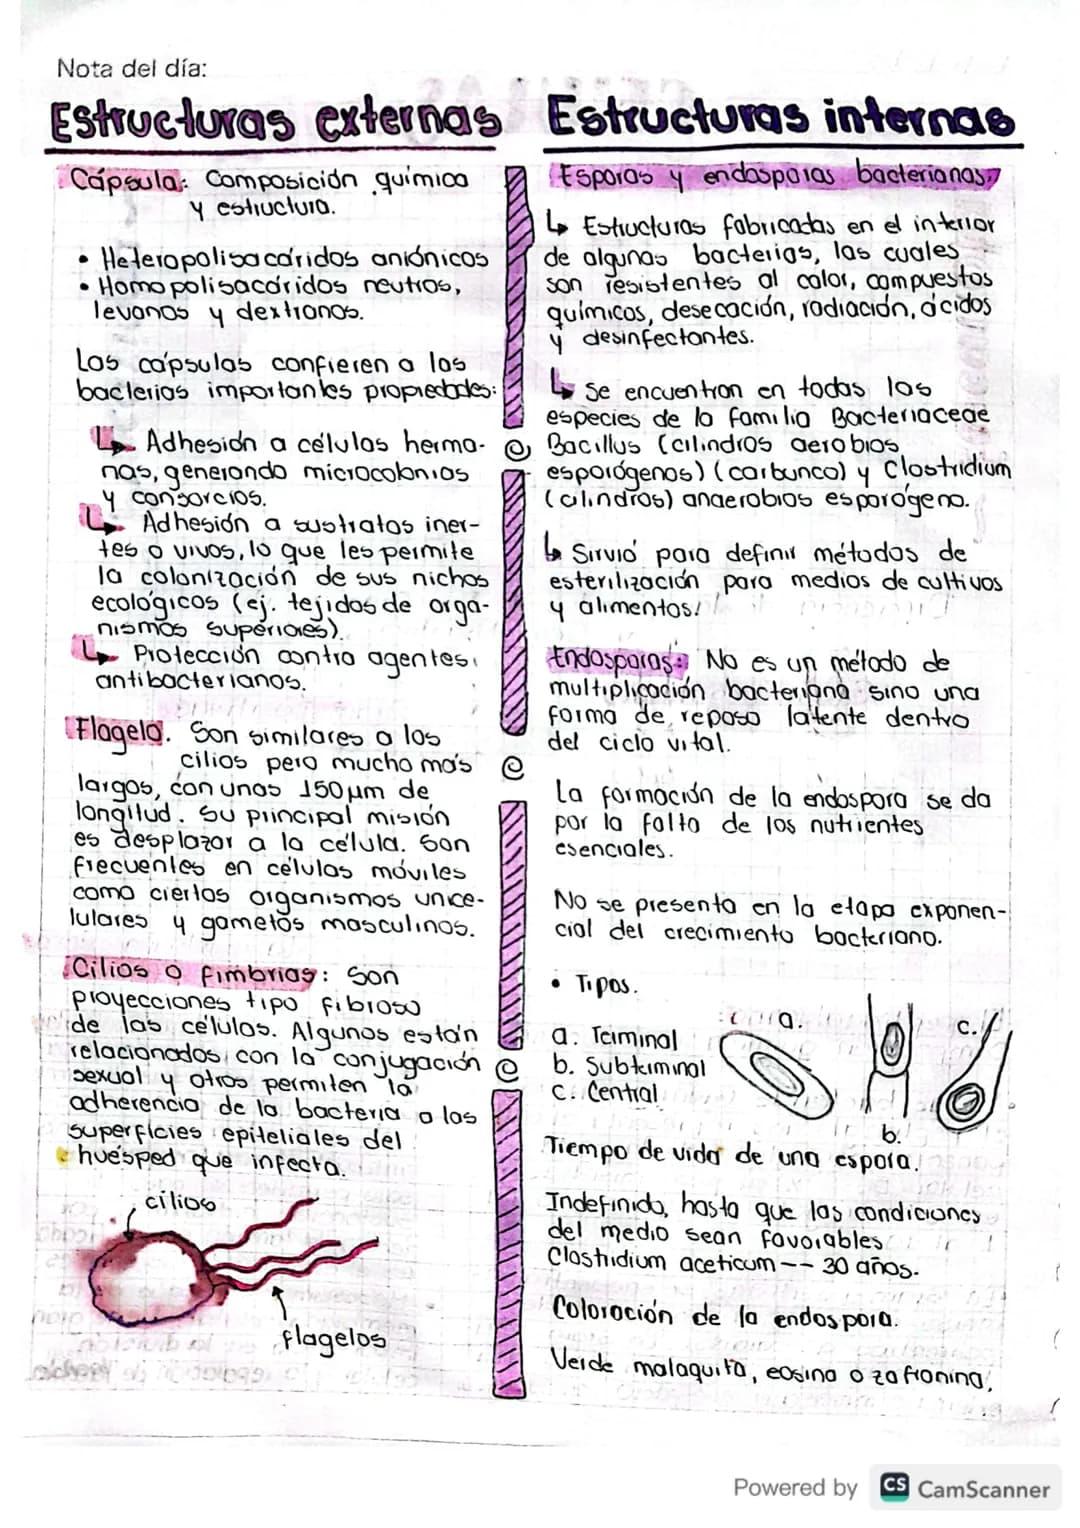 Nota del día:
Estructuras externas
Cápsula: Composición química
y estructura.
• Heteropolisacáridos aniónicos
• Homopolisacáridos neutros,
levanos y dextranos.
Las cápsulas confieren a las
bacterias importantes propiedades:
↳ Adhesión a células herma-
nas, generando microcolonias
y consorcios.
↳ Adhesión a sustratos iner-
tes o vivos, lo que les permite
la colonización de sus nichos
ecológicos (ej. tejidos de orga-
nismos superiores).
↳ Protección contra agentes
antibacterianos.
Flagelo. Son similares a los
cilios pero mucho más
largos, con unos 150 µm de
longitud. Su principal misión
es desplazar a la célula. Son
frecuentes en células móviles
como ciertos organismos unice-
lulares y gametos masculinos.
Cilios o fimbrias: Son
proyecciones tipo fibroso
de las células. Algunos están
relacionados con la conjugación
sexual y otros permiten la
adherencia de la bacteria a las
superficies epiteliales del
huésped que infecta.
cilios
flagelos
Estructuras internas
Esporas y endosporas bacterianas,
↳ Estructuras fabricadas en el interior
de algunas bacterias, las cuales
son resistentes al calor, compuestos
químicos, desecación, radiación, ácidos
y desinfectantes.
↳ Se encuentran en todas las
especies de la familia Bacteriaceae
Bacillus (cilindros aerobios
esporógenos) (carbunco) y Clostridium
(cilindros) anaerobios esporógeno.
↳ Sirvió para definir métodos de
esterilización para medios de cultivos
y alimentos.
Endosporas: No es un método de
multiplicación bacteriana sino una
forma de reposo latente dentro
del ciclo vital.
La formación de la endospora se da
por la falta de los nutrientes
esenciales.
No se presenta en la etapa exponen-
cial del crecimiento bacteriano.
• Tipos.
a. Terminal
b. Subterminal
c. Central
a.
b.
c.
Tiempo de vida de una espora.
Indefinido, hasta que las condiciones
del medio sean favorables
Clostridium aceticum -- 30 años.
Coloración de la endospora.
Verde malaquita, eosina o zafranina.
Powered by CS CamScanner